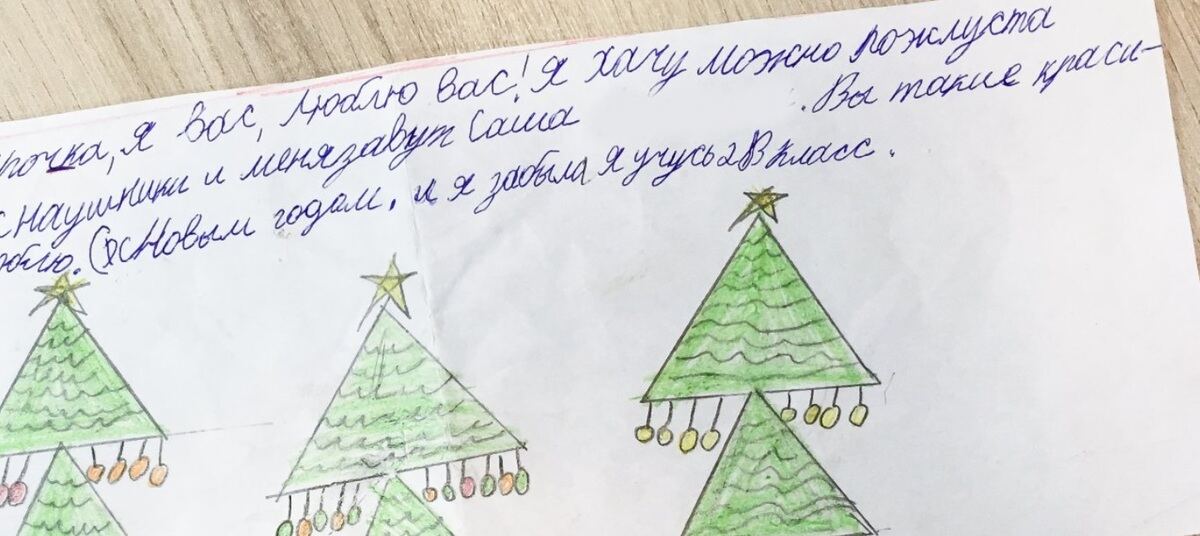 рочка, я вас, люблю вас! Я хачу можно пожлуста
с наушники и менязавут Саша . Вы такие краси-
юблю. С Новым годом. и я забыла я учусь 2 В класс.